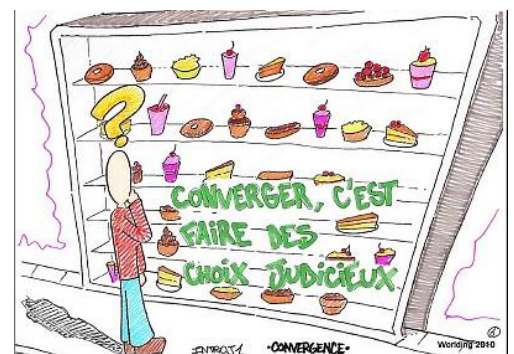 ?
CONVERGER, C'EST
FAIRE DES
CHOIX JUDICIEUX
-CONVERGENCE-
Worlding 2010